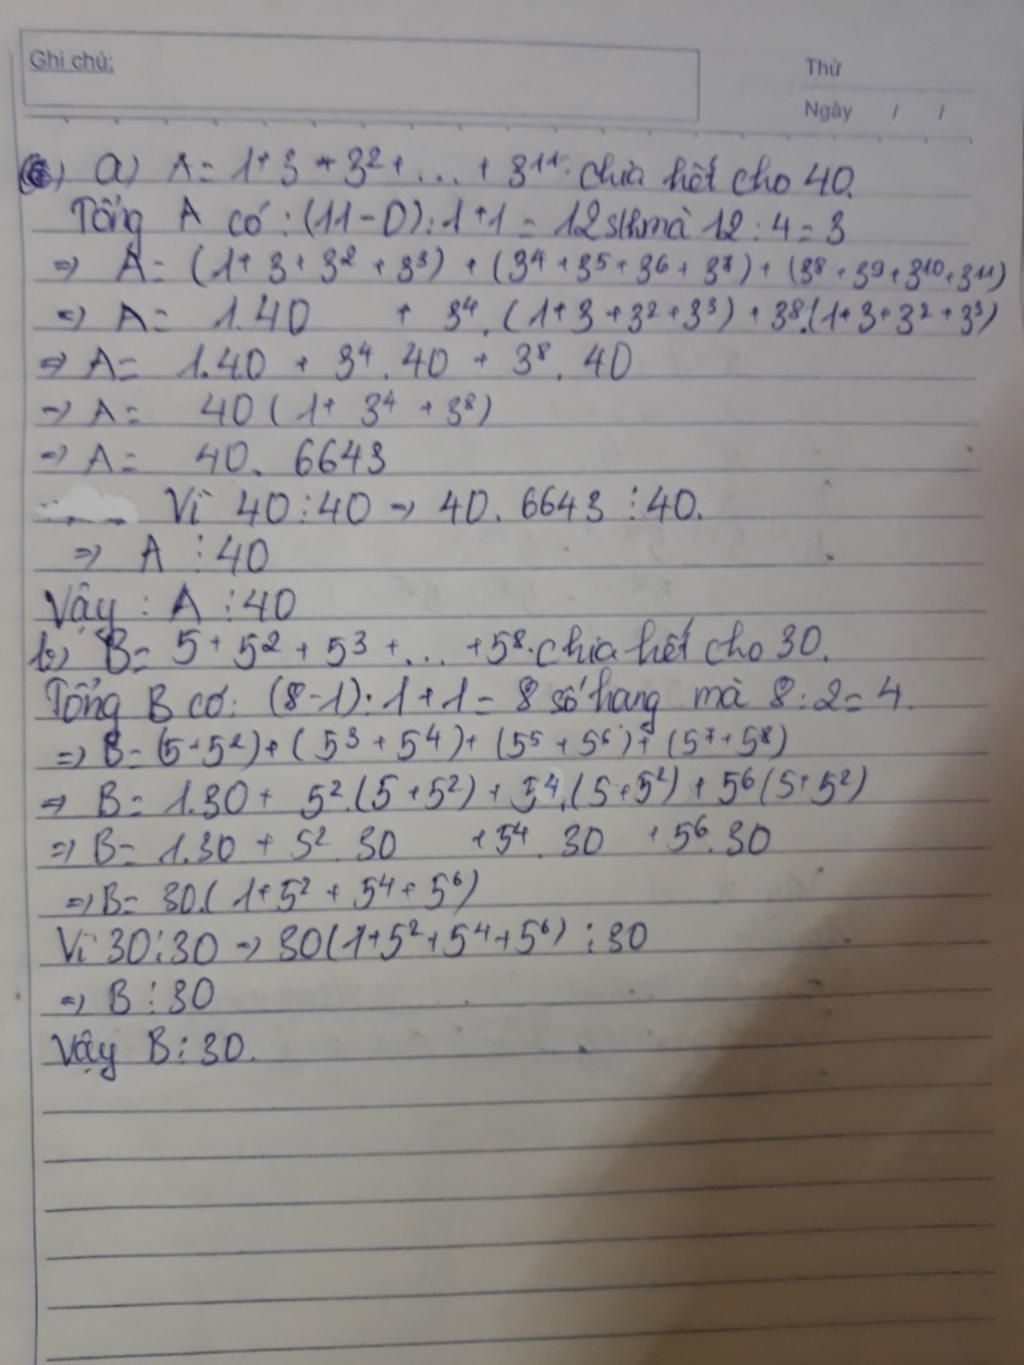 Ghi chú:
Thứ
Ngày / /
a) A = 1 + 3 + 3² + ... + 3¹¹. chia hết cho 40.
Tổng A có : (11 - 0) : 1 + 1 = 12 SH mà 12 : 4 = 3
=> A = (1 + 3 + 3² + 3³) + (3⁴ + 3⁵ + 3⁶ + 3⁷) + (3⁸ + 3⁹ + 3¹⁰ + 3¹¹)
=> A = 1.40 + 3⁴. (1 + 3 + 3² + 3³) + 3⁸.(1 + 3 + 3² + 3³)
=> A = 1.40 + 3⁴. 40 + 3⁸. 40
=> A = 40 ( 1 + 3⁴ + 3⁸)
=> A = 40. 6643
Vì 40 ⋮ 40 => 40. 6643 ⋮ 40.
=> A ⋮ 40
Vậy : A ⋮ 40
b) B = 5 + 5² + 5³ + ... + 5⁸. chia hết cho 30.
Tổng B có: (8 - 1) : 1 + 1 = 8 số hạng mà 8 : 2 = 4.
=> B = (5 + 5²) + ( 5³ + 5⁴) + (5⁵ + 5⁶) + (5⁷ + 5⁸)
=> B = 1.30 + 5².(5 + 5²) + 5⁴.(5 + 5²) + 5⁶(5 + 5²)
=> B = 1.30 + 5². 30 + 5⁴. 30 + 5⁶. 30
=> B = 30.( 1 + 5² + 5⁴ + 5⁶)
Vì 30 ⋮ 30 => 30(1 + 5² + 5⁴ + 5⁶) ⋮ 30
=> B ⋮ 30
Vậy B ⋮ 30.